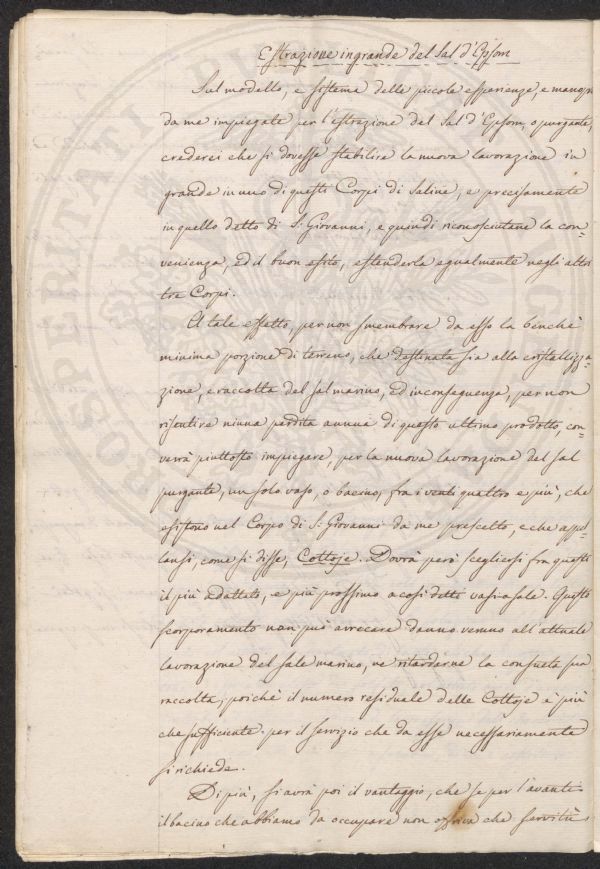 Estrazione in grande del Sal d'Epsom
Sul modello, e sistema delle piccole esperienze, e manopr
da me impiegate per l'estrazione del Sal d'Epsom, o purgante,
crederei che si dovesse stabilire la nuova lavorazione in
grande in uno di questi Corpi di Saline, e precisamente
in quello detto di S. Giovanni, e quindi riconosciutane la con=
venienza, ed il buon esito, estenderla egualmente negli altri
tre Corpi.
A tale effetto, per non smembrare da esso la benchè
minima porzione di terreno, che destinata sia alla cristallizza=
zione, e raccolta del sal marino, ed in conseguenza, per non
risentire niuna perdita annua di questo ultimo prodotto, con=
verrà piuttosto impiegare, per la nuova lavorazione del sal
purgante, un solo vaso, o bacino, fra i venti quattro e più, che
esistono nel Corpo di S. Giovanni da me prescelto, e che appel=
lansi, come si disse, Cottoje. Dovrà però scegliersi fra questi
il più adattato, e più prossimo a così detti vasi a sale. Questo
scorporamento non può arrecare danno veruno all'attuale
lavorazione del sale marino, ne ritardarne la consueta sua
raccolta; poichè il numero residuale delle Cottoje è più
che sufficiente per il servizio che da esse necessariamente
si richiede.
Di più, si avrà poi il vantaggio, che se per l'avanti
il bacino che abbiamo da occupare non che servitù
PROSPERITATI PUBLICAE